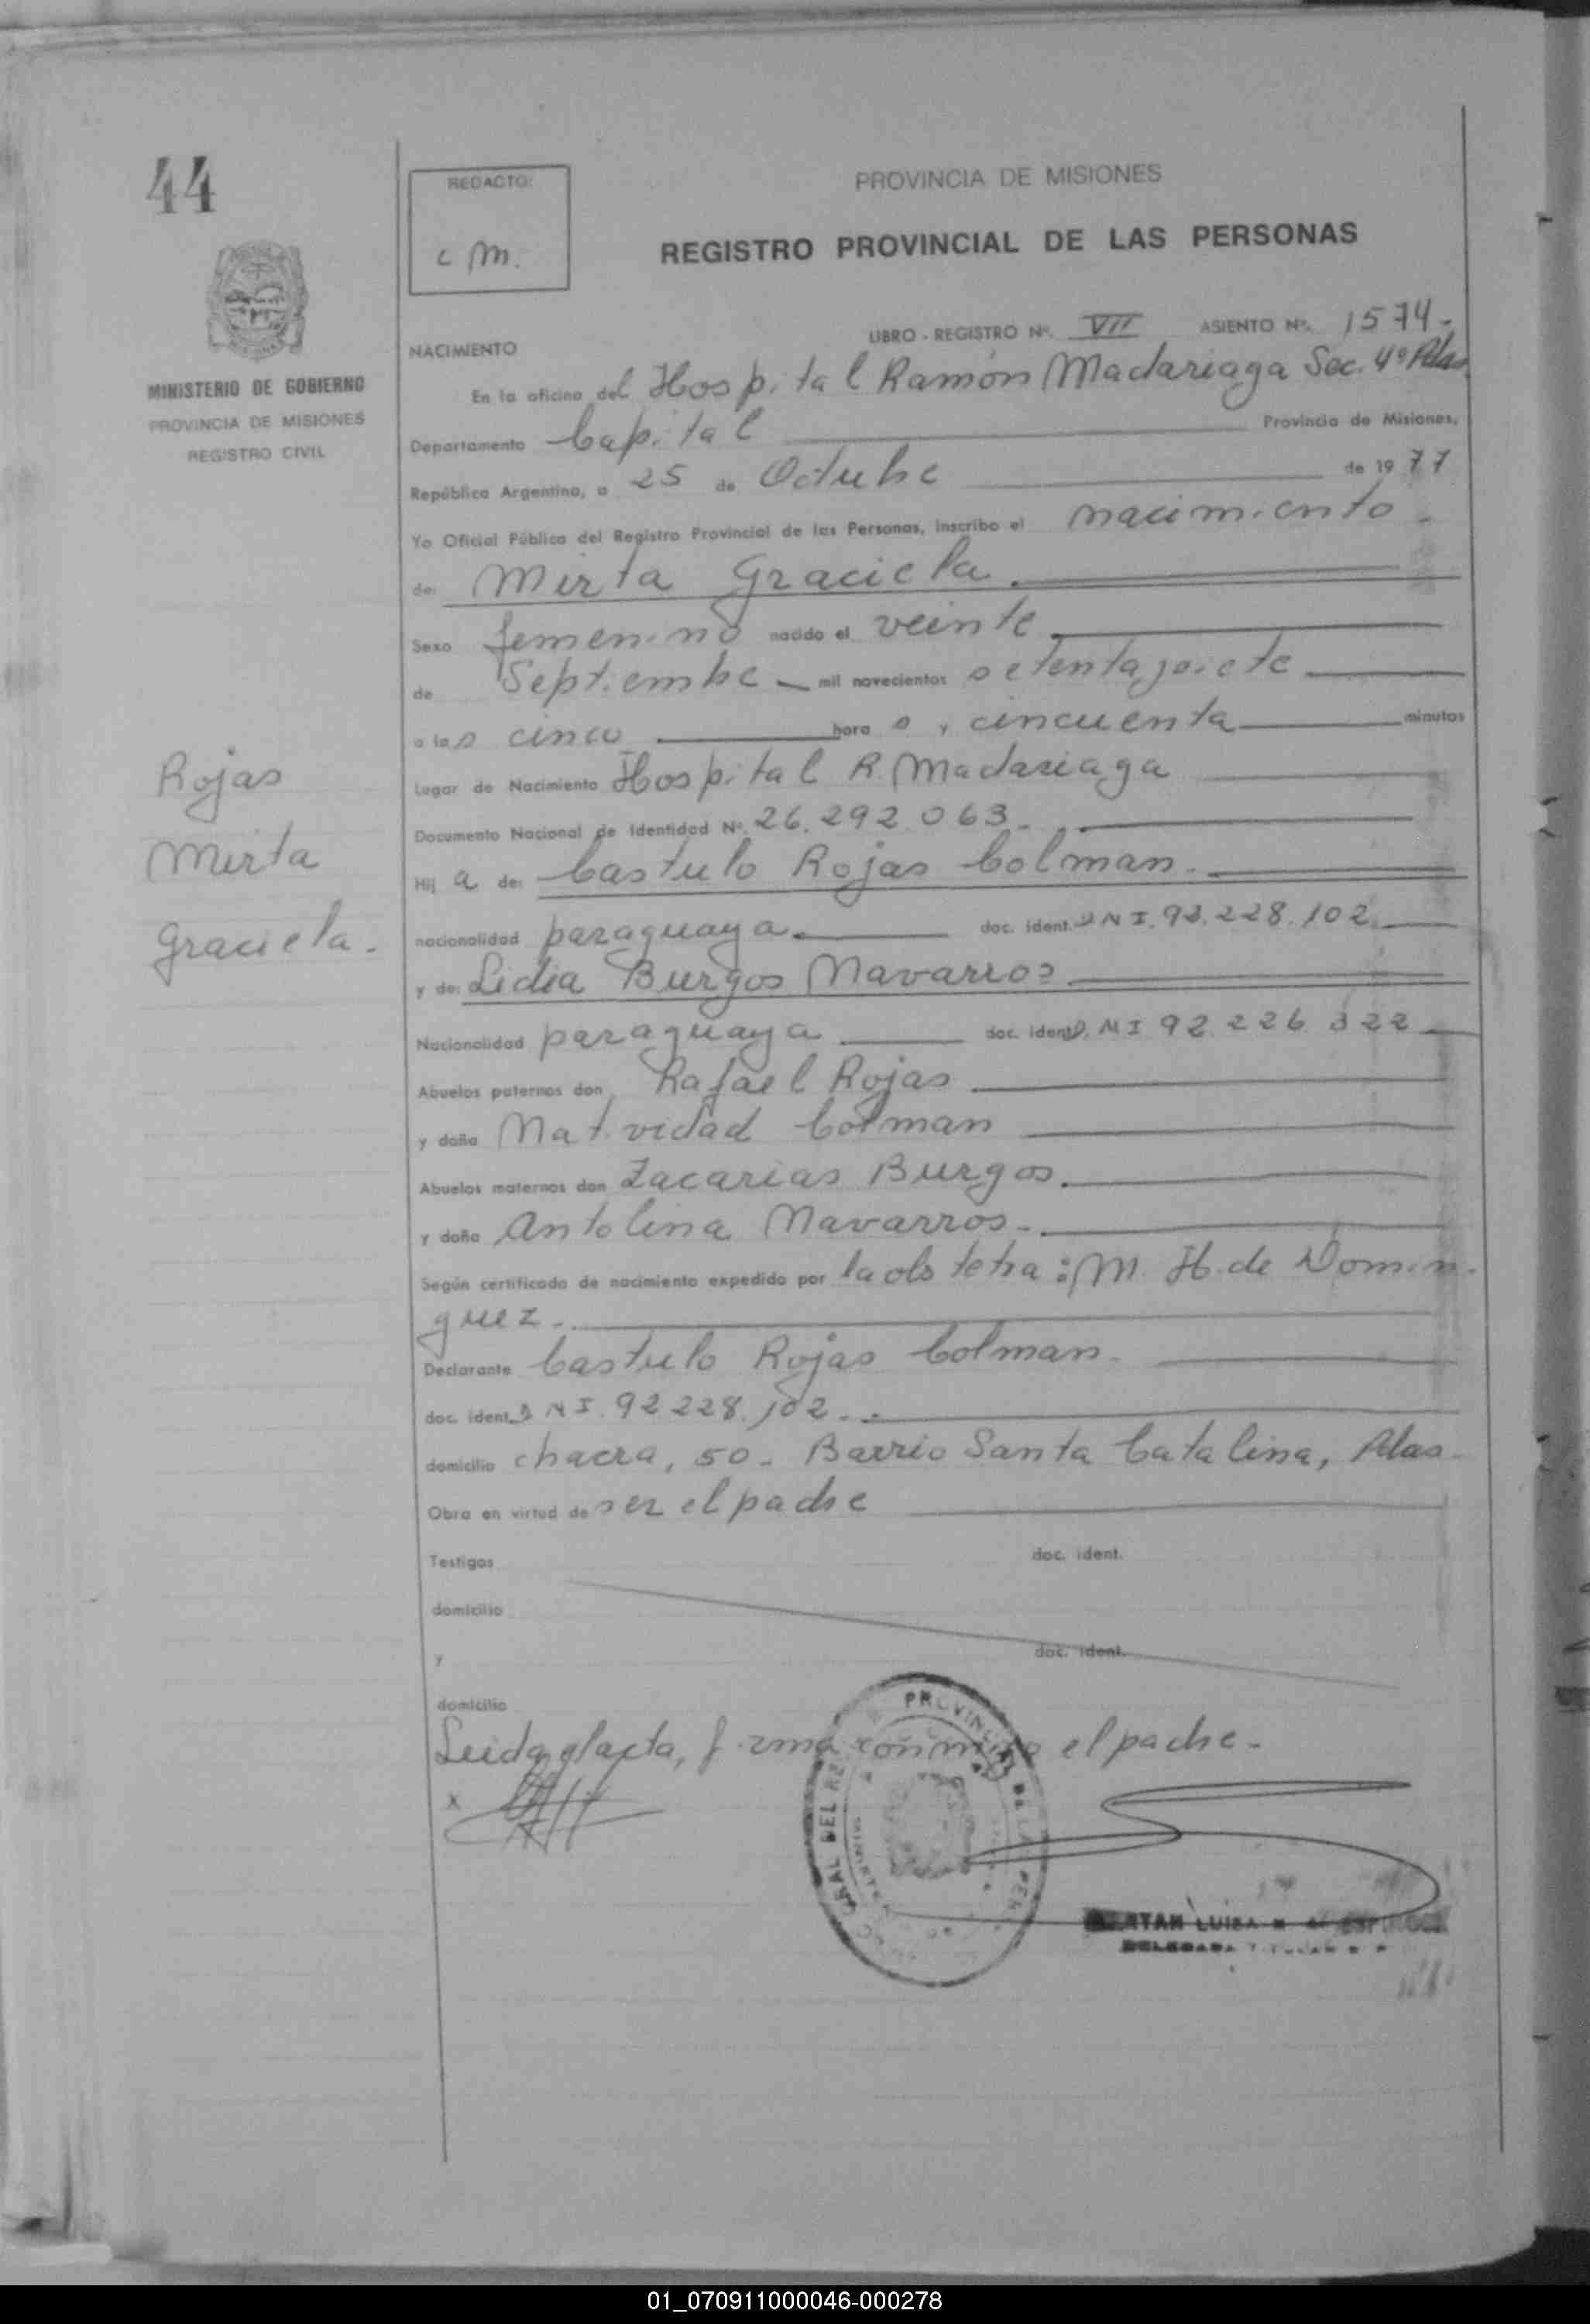 44
REDACTO:
c M.
PROVINCIA DE MISIONES
REGISTRO PROVINCIAL DE LAS PERSONAS
MINISTERIO DE GOBIERNO
PROVINCIA DE MISIONES
REGISTRO CIVIL
LIBRO - REGISTRO Nº. VII ASIENTO Nº. 1574-
NACIMIENTO
En la oficina del Hospital Ramón Madariaga Sec. 4º Pdas
Departamento Capital Provincia de Misiones,
República Argentina, a 25 de Octubre de 1977
Yo Oficial Público del Registro Provincial de las Personas, inscribo el nacimiento
de: Mirta Graciela.
Sexo femenino nacido el veinte
de Septiembre mil novecientos setenta y siete
a las cinco hora s y cincuenta minutos
Lugar de Nacimiento Hospital R. Madariaga
Documento Nacional de Identidad Nº. 26.292.063-
Rojas
Mirta
Graciela.
Hij a de: Castulo Rojas Colman.
nacionalidad paraguaya. doc. ident. DNI. 92.228.102.
y de: Lidia Burgos Navarros
Nacionalidad paraguaya doc. ident. D.NI 92.226.322
Abuelos paternos don Rafael Rojas
y doña Natividad Colman
Abuelos maternos don Zacarias Burgos.
y doña Antolina Navarros.
Según certificado de nacimiento expedido por la obstetra: M. H. de Domin-
guez.
Declarante Castulo Rojas Colman.
doc. ident. DNI. 92.228.102.
domicilio chacra, 50. Barrio Santa Catalina, Pdas.
Obra en virtud de ser el padre
Testigos doc. ident.
domicilio
y doc. ident.
domicilio
Leida el acta, firma conmigo el padre.
x
PROVINCIAL DE LAS PER
RAL DEL RE
LUISA M. DE
DELEGADA TITULAR
01_070911000046-000278